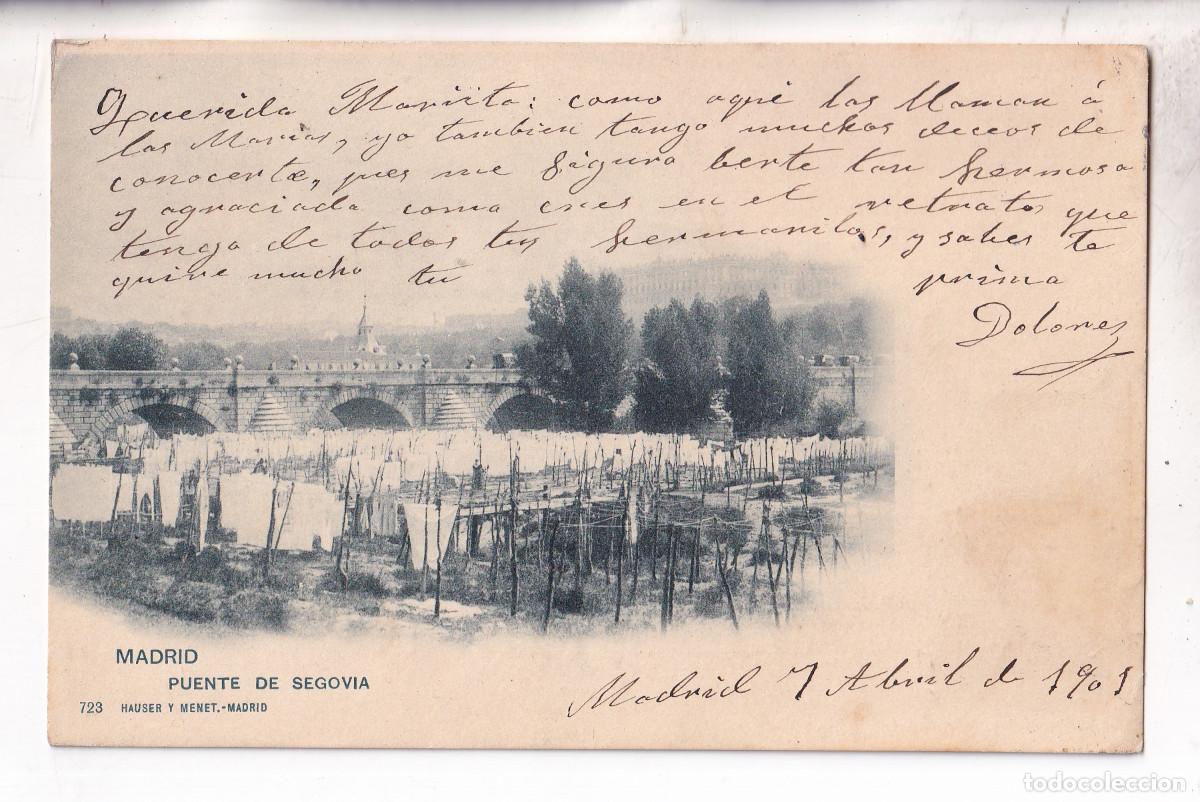 Querida Mariita: como aqui las llaman á
las Marias, yo tambien tango muchos deceos de
conocerte, pues me figuro berte tan hermosa
y agraciada como eres en el retrato que
tengo de todos tus hermanitos, y sabes te
quire mucho tu prima
Dolores
MADRID
PUENTE DE SEGOVIA
723 HAUSER Y MENET.-MADRID
Madrid 7 Abril de 1901
todocoleccion